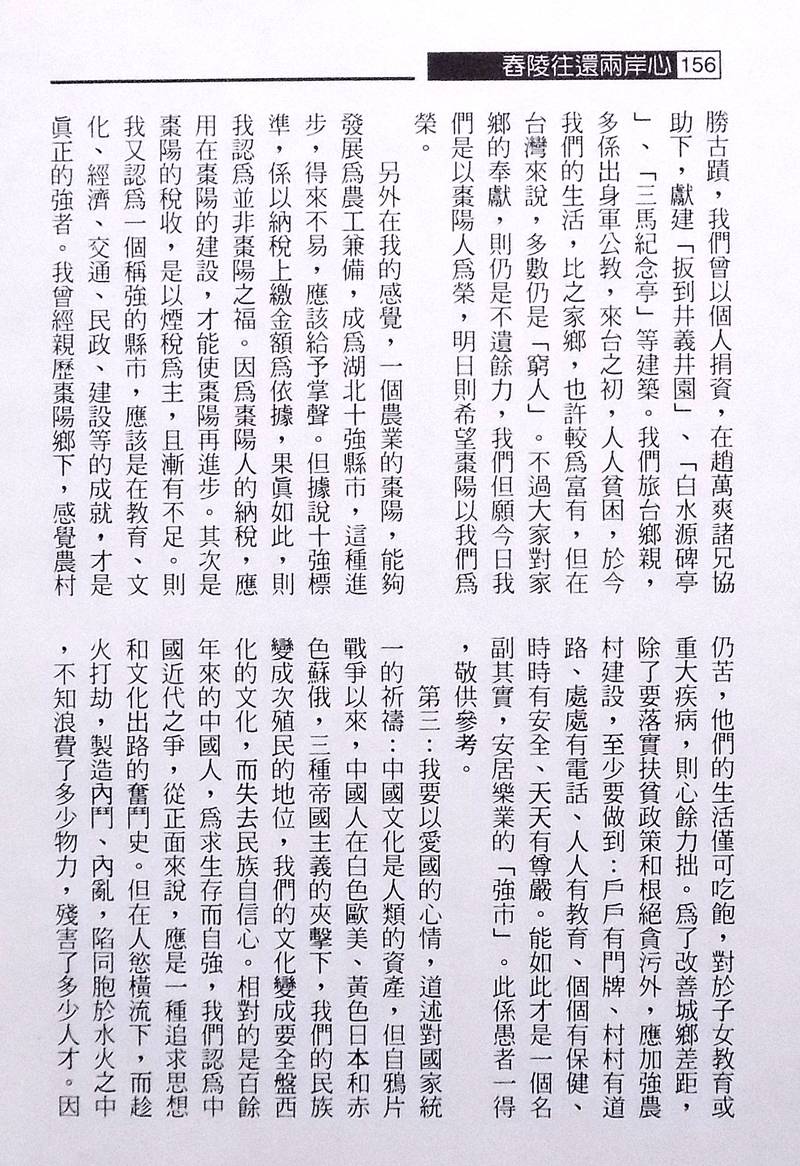 舂陵往還兩岸心 156
勝古蹟，我們曾以個人捐資，在趙萬爽諸兄協
助下，獻建「扳到井義井園」、「白水源碑亭
」、「三馬紀念亭」等建築。我們旅台鄉親，
多係出身軍公教，來台之初，人人貧困，於今
我們的生活，比之家鄉，也許較為富有，但在
台灣來說，多數仍是「窮人」。不過大家對家
鄉的奉獻，則仍是不遺餘力，我們但願今日我
們是以棗陽人為榮，明日則希望棗陽以我們為
榮。
另外在我的感覺，一個農業的棗陽，能夠
發展為農工兼備，成為湖北十強縣市，這種進
步，得來不易，應該給予掌聲。但據說十強標
準，係以納稅上繳金額為依據，果眞如此，則
我認為並非棗陽之福。因為棗陽人的納稅，應
用在棗陽的建設，才能使棗陽再進步。其次是
棗陽的稅收，是以煙稅為主，且漸有不足。則
我又認為一個稱強的縣市，應該是在教育、文
化、經濟、交通、民政、建設等的成就，才是
眞正的強者。我曾經親歷棗陽鄉下，感覺農村
仍苦，他們的生活僅可吃飽，對於子女教育或
重大疾病，則心餘力拙。為了改善城鄉差距，
除了要落實扶貧政策和根絕貪污外，應加強農
村建設，至少要做到：戶戶有門牌、村村有道
路、處處有電話、人人有教育、個個有保健、
時時有安全、天天有尊嚴。能如此才是一個名
副其實，安居樂業的「強市」。此係愚者一得
，敬供參考。
第三：我要以愛國的心情，道述對國家統
一的祈禱：中國文化是人類的資產，但自鴉片
戰爭以來，中國人在白色歐美、黃色日本和赤
色蘇俄，三種帝國主義的夾擊下，我們的民族
變成次殖民的地位，我們的文化變成要全盤西
化的文化，而失去民族自信心。相對的是百餘
年來的中國人，為求生存而自強，我們認為中
國近代之爭，從正面來說，應是一種追求思想
和文化出路的奮鬥史。但在人慾橫流下，而趁
火打劫，製造內鬥、內亂，陷同胞於水火之中
，不知浪費了多少物力，殘害了多少人才。因